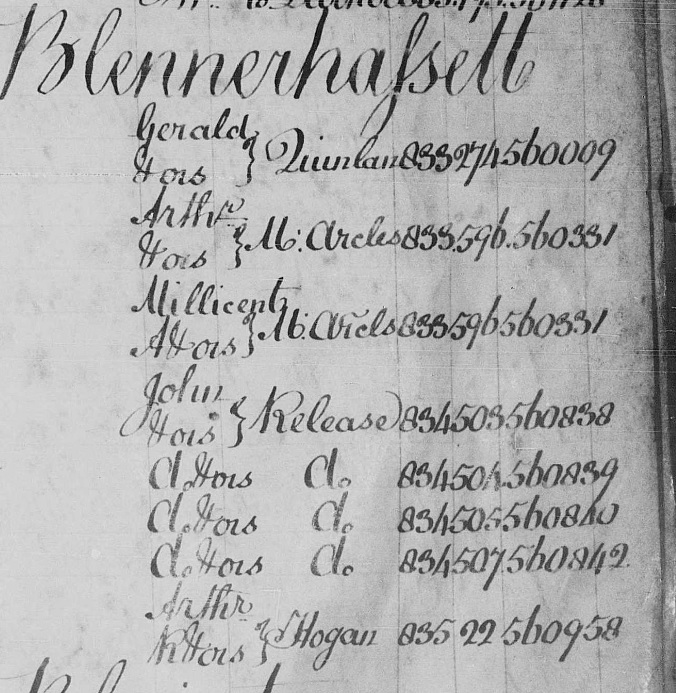 Blennerhassett
Gerald
&ors } Quinlan 833 274 560009
Arthr
&ors } 833.596.560331
Millicent
A &ors } 833 596 560331
John
&ors } Release 834 503 560838
d. &ors d. 834 504 560839
d. &ors d. 834 505 560840
d. &ors d. 834 507 560842
Arthr
R &ors } Hogan 835 22 560958